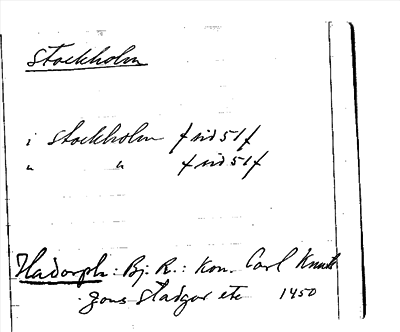 Stockholm
i Stockholm f nid 51 f
" " f nid 51 f
Hadorph: Bj. R.: Kon. Carl Knuts
sons Stadgar etc 1450